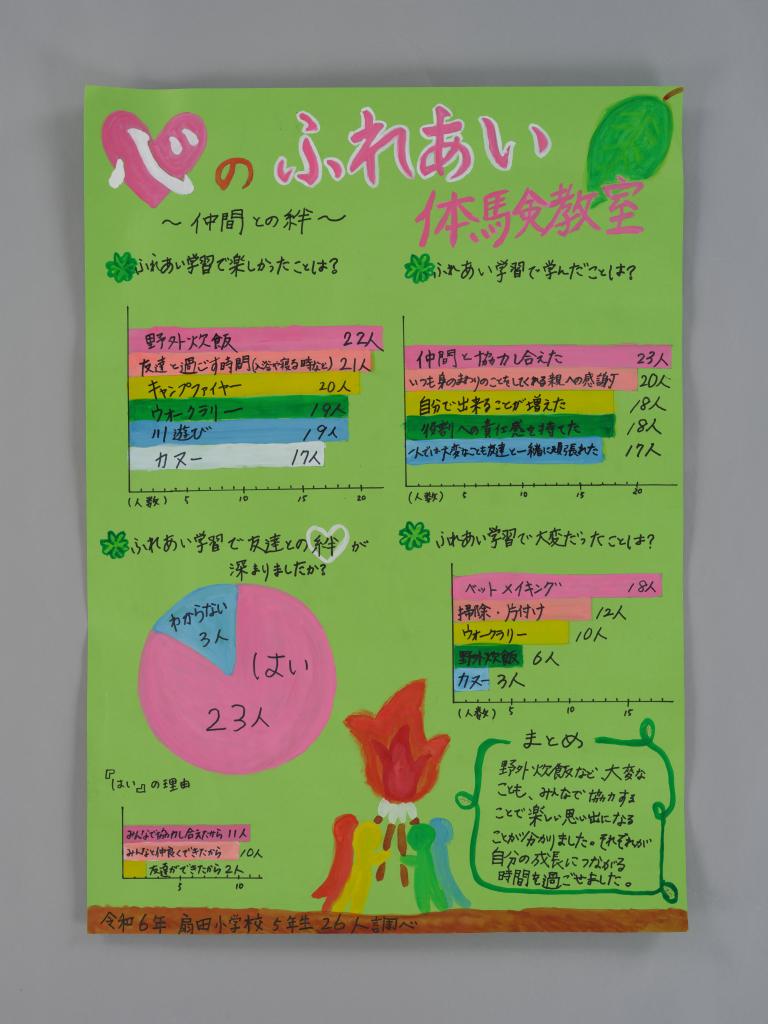 心のふれあい
体験教室
～仲間との絆～
ふれあい学習で楽しかったことは?
野外炊飯 22人
友達と過ごす時間(入浴や寝る時など) 21人
キャンプファイヤー 20人
ウォークラリー 19人
川遊び 19人
カヌー 17人
(人数) 5 10 15 20
ふれあい学習で学んだことは?
仲間と協力し合えた 23人
いつも身のまわりのことをしてくれる親への感謝 20人
自分で出来ることが増えた 18人
役割への責任感を持てた 18人
一人では大変なことも友達と一緒に頑張れた 17人
(人数) 5 10 15 20
ふれあい学習で友達との絆が
深まりましたか?
わからない
3人
はい
23人
『はい』の理由
みんなで協力し合えたから 11人
みんなと仲良くできたから 10人
友達ができたから 2人
5 10
ふれあい学習で大変だったことは?
ベットメイキング 18人
掃除・片付け 12人
ウォークラリー 10人
野外炊飯 6人
カヌー 3人
(人数) 5 10 15
まとめ
野外炊飯など、大変な
ことも、みんなで協力する
ことで楽しい思い出になる
ことが分かりました。それぞれが
自分の成長につながる
時間を過ごせました。
令和6年 扇田小学校 5年生 26人調べ